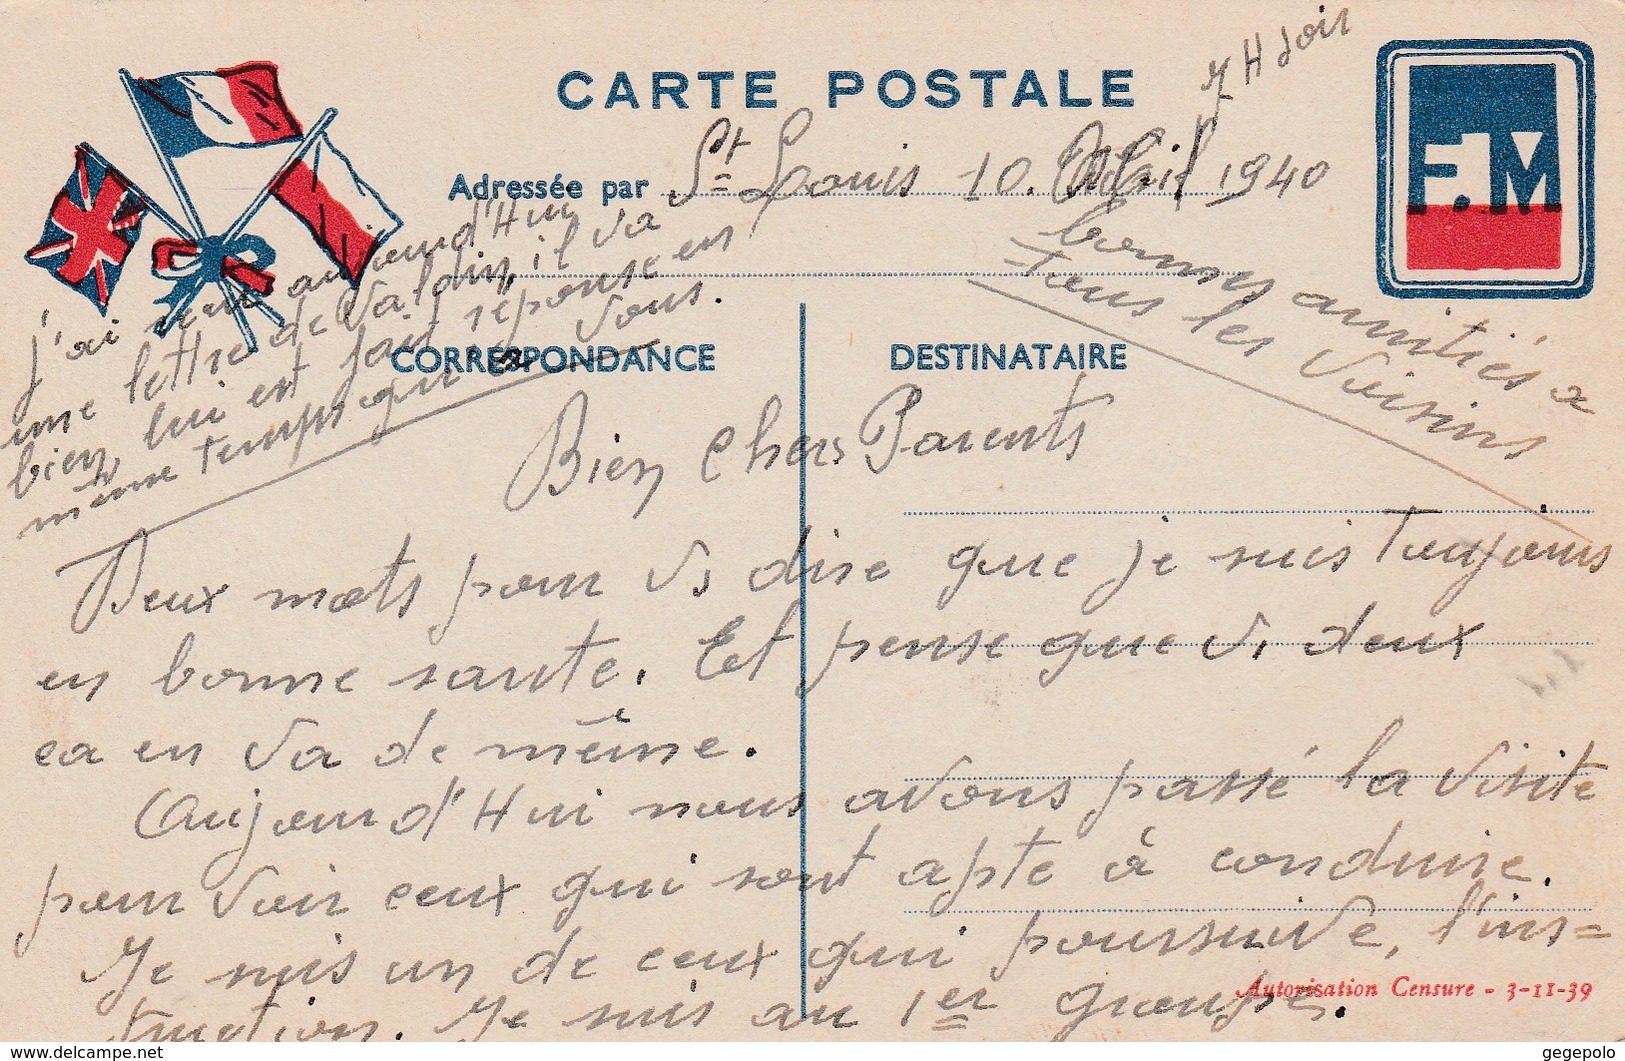 CARTE POSTALE
7 H soir
F.M
Adressée par St Louis 10. Avril 1940
J'ai reçu aujourd'Hui
une lettre de Valdin, il va
bien, lui est fait réponse en
même temps qu'a vous.
bonnes amitiés a
tous les Voisins
CORRESPONDANCE
DESTINATAIRE
Bien Chers Parents
Deux mots pour Vs dire que je suis toujours
en bonne sante. Et pense que Vs deux
ca en Va de même.
Aujourd'Hui nous avons passé la visite
pour Voir ceux qui sont apte à conduire.
Je suis un de ceux qui poursuive, l'ins=
truction. Je suis au 1er groupe.
Autorisation Censure - 3-11-39
gegepolo